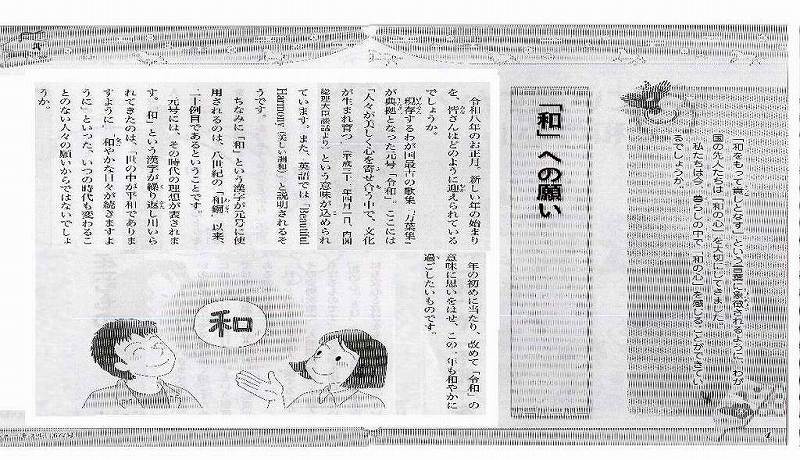 「和をもって貴しとなす」という言葉に象徴されるように、わが
国の先人たちは「和の心」を大切にしてきました。
私たちは今、暮らしの中で「和の心」を感じることができてい
るでしょうか。
「和」への願い
令和八年のお正月、新しい年の始まり
を、皆さんはどのように迎えられている
でしょうか。
現存するわが国最古の歌集『万葉集』
が典拠となった元号「令和」。ここには
「人々が美しく心を寄せ合う中で、文化
が生まれ育つ」（平成三十一年四月一日、内閣
総理大臣談話より）という意味が込められ
ています。また、英語では「Beautiful
Harmony（美しい調和）」と説明されるそ
うです。
ちなみに「和」という漢字が元号に使
用されるのは、八世紀の「和銅」以来、
二十例目であるということです。
元号には、その時代の理想が表されま
す。「和」という漢字が繰り返し用いら
れてきたのは、「世の中が平和でありま
すように」「和やかな日々が続きますよ
うに」といった、いつの時代も変わるこ
とのない人々の願いからではないでしょ
うか。
年の初めに当たり、改めて「令和」の
意味に思いをはせ、この一年も和やかに
過ごしたいものです。
和